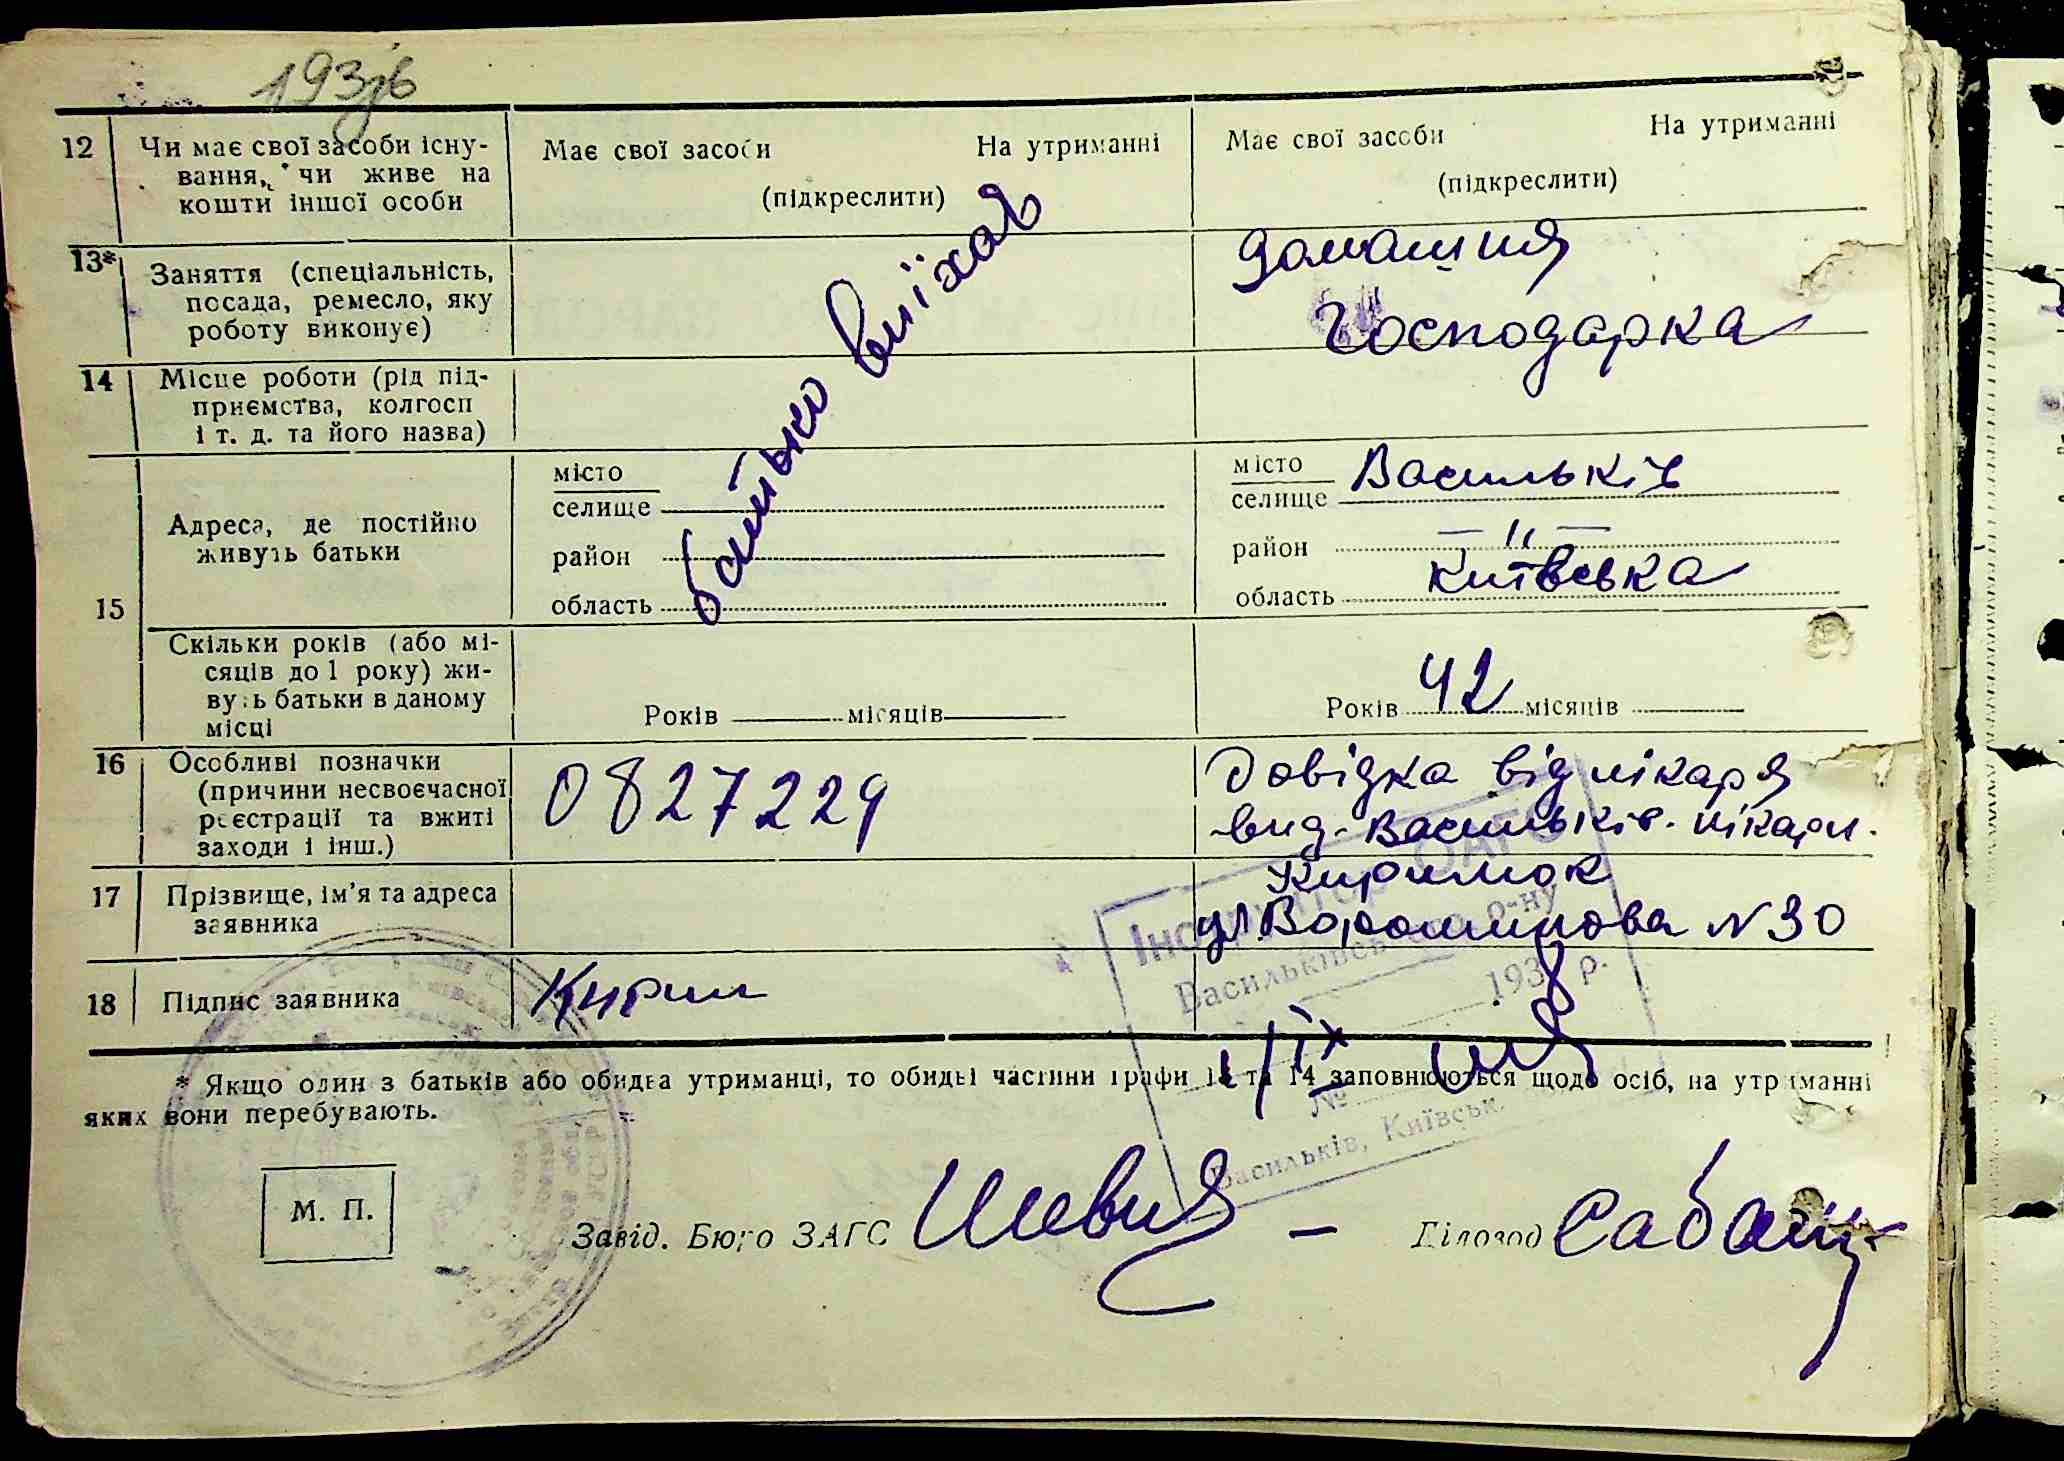 193
12 Чи має свої засоби існу-
вання, чи живе на
кошти іншої особи
Має свої засоби На утриманні
(підкреслити)
Має свої засоби На утриманні
(підкреслити)
13* Заняття (спеціальність,
посада, ремесло, яку
роботу виконує)
батько виїхав
домашня
господарка
14 Місце роботи (рід під-
приємства, колгосп
і т. д. та його назва)
15 Адреса, де постійно
живуть батьки
місто
селище
район
область
місто Васильків
селище
район — " —
область Київська
Скільки років (або мі-
сяців до 1 року) жи-
вуть батьки в даному
місці
Років місяців
Років 42 місяців
16 Особливі позначки
(причини несвоєчасної
реєстрації та вжиті
заходи і інш.)
0827229
Довідка від лікаря
вид. Васильків. лікарн.
17 Прізвище, ім'я та адреса
заявника
Кирилюк
ул. Ворошилова N 30
18 Підпис заявника
Кирил
Інспектор ОАГС
Васильківського р-ну
1938 р.
1/IX
№
Васильків, Київськ.
* Якщо один з батьків або обидва утриманці, то обидві частини графи 13 та 14 заповнюються щодо осіб, на утриманні
яких вони перебувають.
М. П.
Завід. Бюро ЗАГС — Діловод